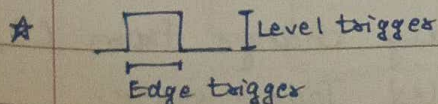 ☆
Level trigger
Edge trigger